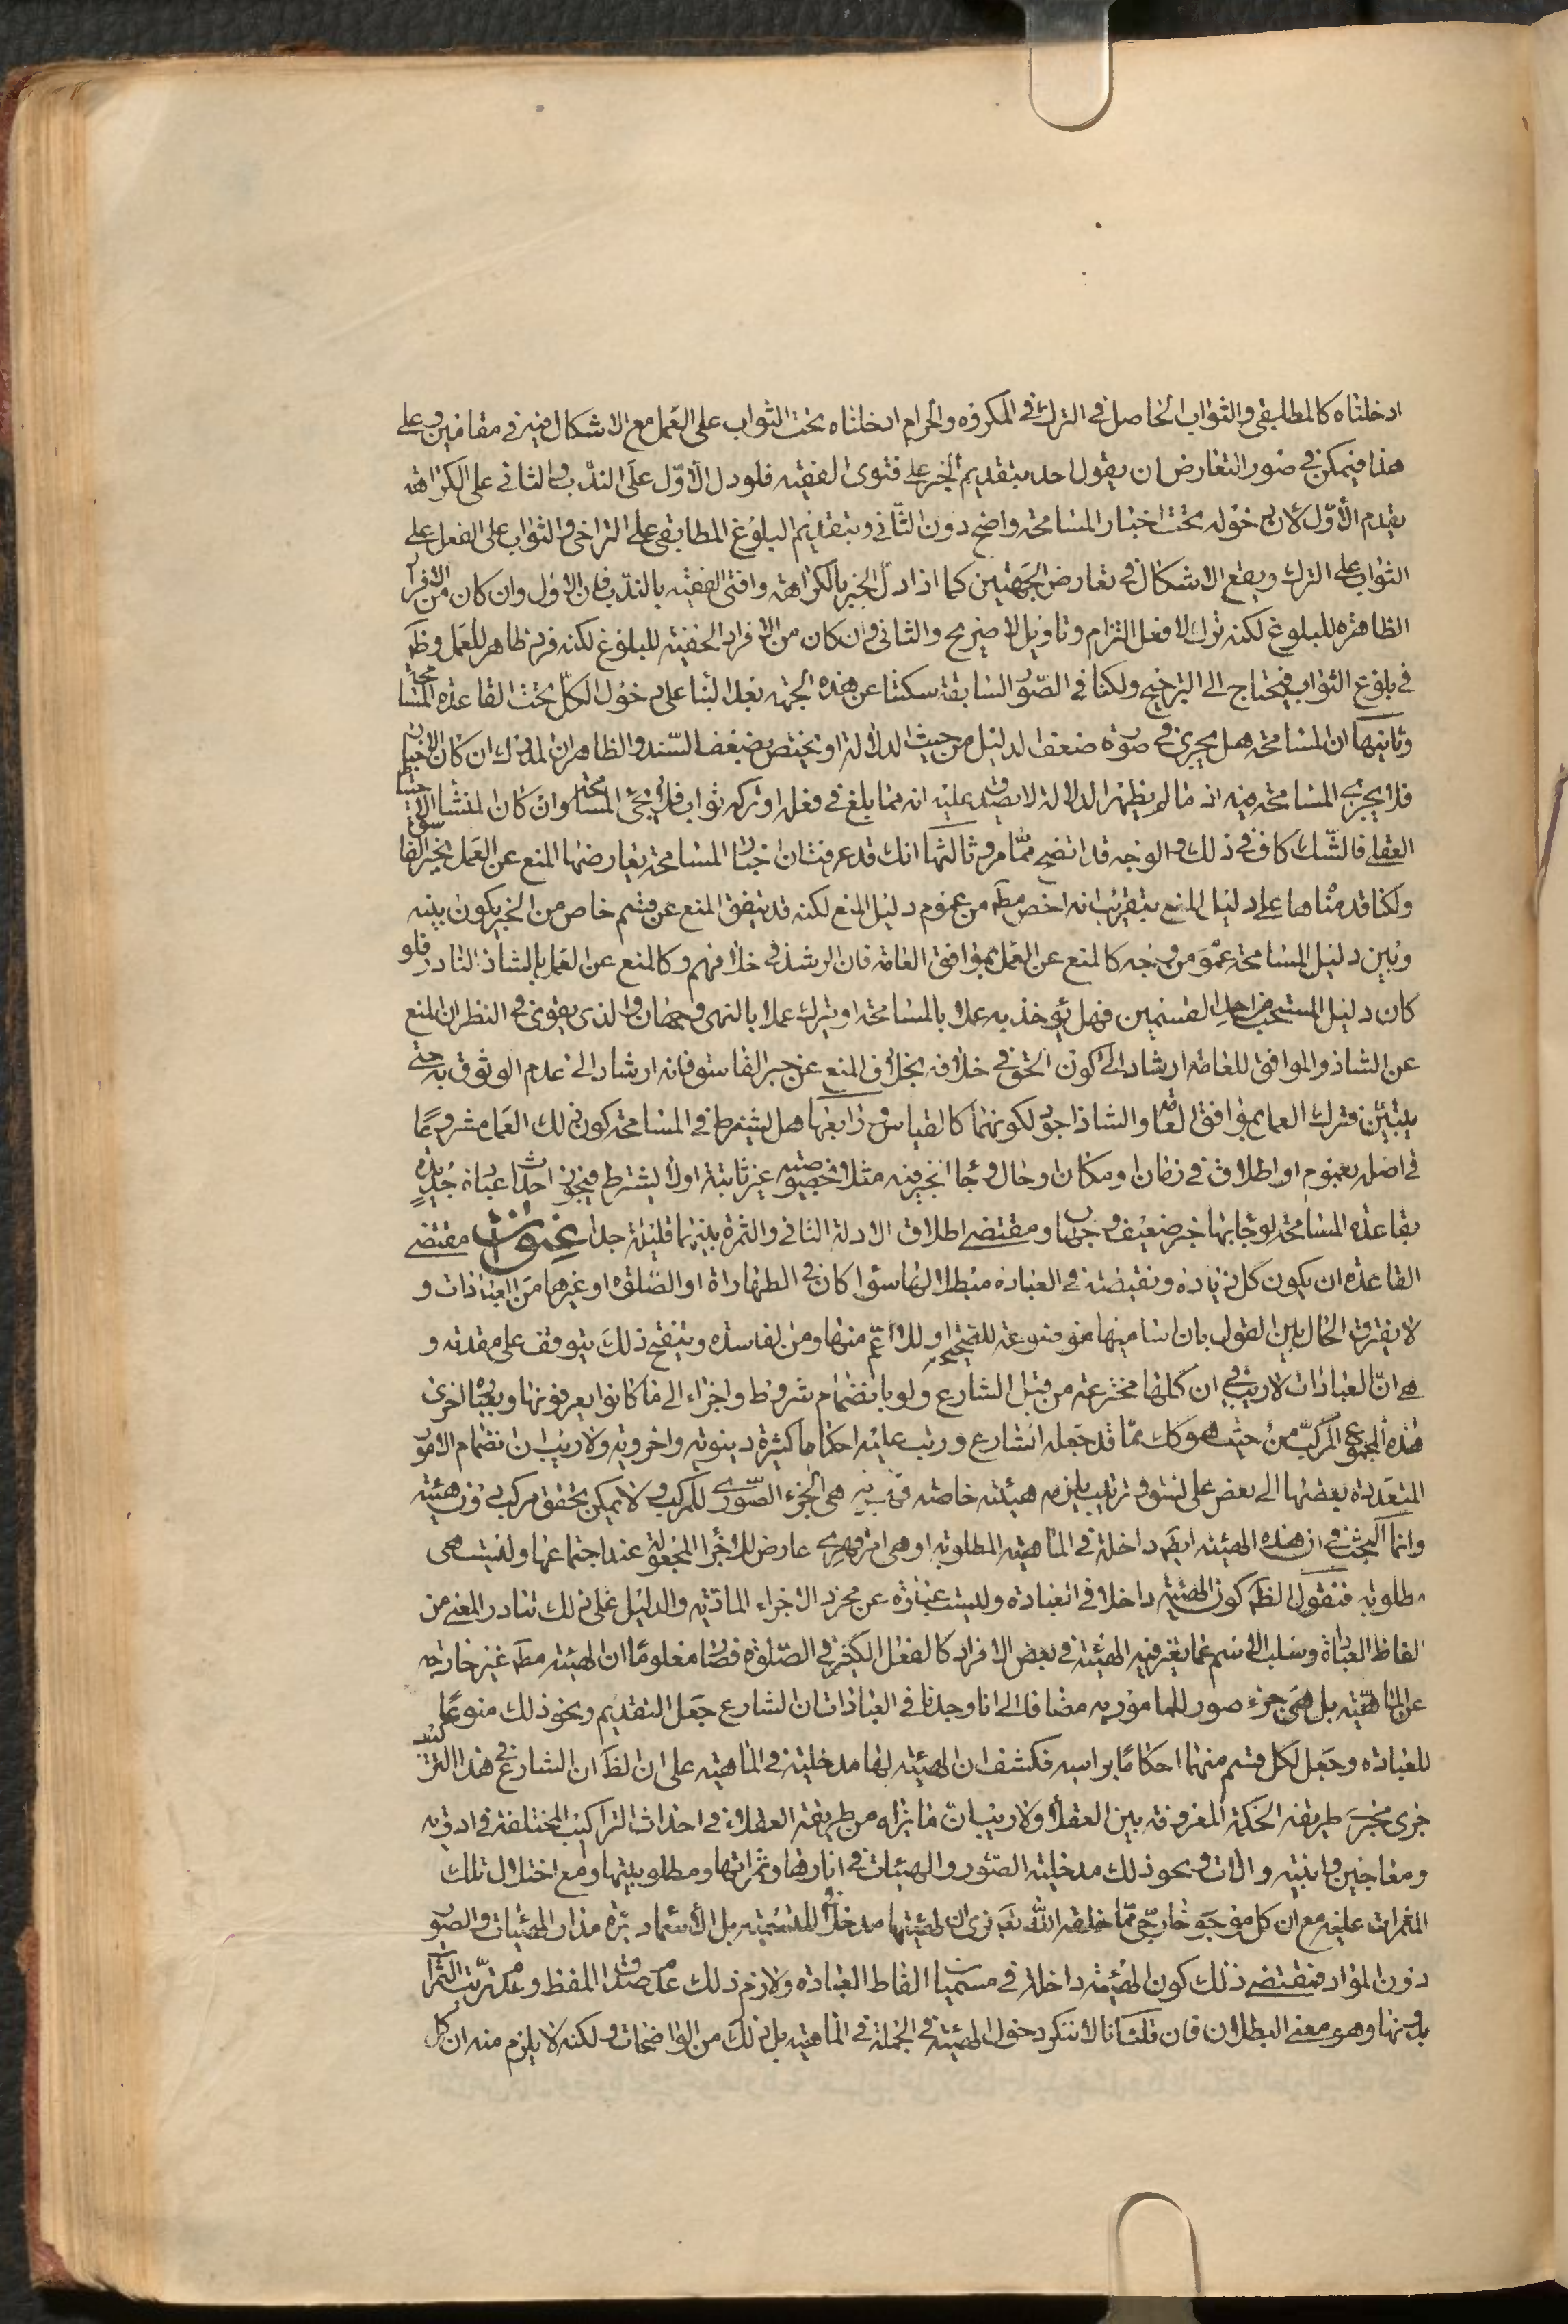 ادخلناه كالمطابقى والثواب الحاصل فى الترك فى المكروه والحرام ادخلناه تحت الثواب على العمل مع الاشكال فيه فى مقامين وعلى
هذا فيمكن فى صور التعارض ان يقول احد بتقديم الخبر على فتوى الفقيه فلو دل الاول على الندب والثانى على الكراهة
يقدم الاول لان دخوله تحت اخبار المسامحة واضح دون الثانى وبتقديم البلوغ المطابقى على التراخى والثواب على الفعل على
الثواب على الترك ويقع الاشكال فى تعارض الجهتين كما اذا دل الخبر بالكراهة وافتى الفقيه بالندب فان الاول وان كان من الافراد
الظاهرة للبلوغ لكنه ترك لا فعل التزام وتاويل لا صريح والثانى وان كان من الافراد الخفية للبلوغ لكنه فرد ظاهر للعمل وظ
فى بلوغ الثواب فيحتاج الى الترجيح ولكنا فى الصور السابقة سكتنا عن هذه الجهة بعد البناء على دخول الكل تحت القاعدة المسامحة
وثانيها ان المسامحة هل يجرى فى صورة ضعف الدليل من حيث الدلالة او يختص بضعف السند والظاهر ان المدرك ان كان الاخبار
فلا يجرى المسامحة فيه اذ ما لم يظهر الدلالة لا يصدق عليه انه مما بلغ فى فعله او تركه ثواب فلا يجئ المسامحة وان كان المنشا الاحتياط
العقلى فالشك كاف فى ذلك والوجه قد اتضح مما مر وثالثها انك قد عرفت ان اخبار المسامحة يعارضها المنع عن العمل بخبر الفاسق
ولكنا قدمناها على دليل المنع بتقريب انه اخص مط من عموم دليل المنع لكنه قد يتفق المنع عن قسم خاص من الخبر يكون بينه
وبين دليل المسامحة عموم من وجه كالمنع عن العمل بموافق العامة فان الرشد فى خلافهم وكالمنع عن العمل بالشاذ النادر فلو
كان دليل المستحب من احد القسمين فهل يؤخذ به عملا بالمسامحة او يترك عملا بالنهى وجهان والذى يقوى فى النظر ان المنع
عن الشاذ والموافق للعامة ارشاد الى كون الحق فى خلافه بخلاف المنع عن خبر الفاسق فانه ارشاد الى عدم الوثوق به حتى
يتبين فترك العمل بموافق العامة والشاذ اجود لكونهما كالقياس ورابعها هل يشترط فى المسامحة كون ذلك العمل مشروعا
فى اصله بعموم او اطلاق فى زمان او مكان او حال وجاء الخبر فيه مثلا وخصوصيته غير ثابتة اولا يشترط فيجوز احداث عبادة جديدة
بقاعدة المسامحة لو جاء بها خبر ضعيف وجهان ومقتضى اطلاق الادلة الثانى والثمرة بينهما قليلة جدا عنوان مقتضى
القاعدة ان يكون كل زيادة ونقيصة فى العبادة مبطلا لها سواء كان فى الطهارة او الصلوة او غيرهما من العبادات و
لا يفترق الحال بين القول بان اساميها موضوعة للصحيح او للاعم منها ومن الفاسدة وينقح ذلك يتوقف على مقدمة و
هى ان العبادات لا ريب فى ان كلها مخترعة من قبل الشارع ولو بانضمام شروط واجزاء الى ما كانوا يعرفونها وبعبارة اخرى
هذه المجموع المركب من حيث هو كك مما قد جعله الشارع ورتب عليه احكاما كثيرة دنيوية واخروية ولا ريب ان انضمام الامور
المتعددة بعضها الى بعض على نسق وترتيب يلزمه هيئة خاصة هى الجزء الصورى للمركب ولا يمكن تحقق مركب دون هيئة
وانما البحث فى ان هذه الهيئة ايض داخلة فى الماهية المطلوبة او هى امر قهرى عارض للاجزاء المجعولة عند اجتماعها وليست هى
مطلوبة فنقول الظ كون الهيئة داخلا فى العبادة وليست عبارة عن مجرد الاجزاء المادية والدليل على ذلك تبادر المعنى من
الفاظ العبادة وسلب الاسم عما يتغير فيه الهيئة فى بعض الافراد كالفعل الكثير فى الصلوة فصار معلوما ان الهيئة مط غير خارجه
عن الماهية بل هى جزء صورى للمامور به مضافا الى انا وجدنا فى العبادات ان الشارع جعل التقديم ونحو ذلك منوعا
للعبادة وجعل لكل قسم منهما احكاما براسه فكشف ان الهيئة لها مدخلية فى الماهية على ان الظ ان الشارع فى هذا التركيب
جرى مجرى طريقة الحكمة المعروفة بين العقلاء ولا ريب ان ما نراه من طريقة العقلاء فى احداث التراكيب المختلفة فى ادوية
ومعاجين وابنية والات ونحو ذلك مدخلية الصور والهيئات فى اثارها وثمراتها ومطلوبيتها ومع اختلال تلك
الثمرات عليه مع ان كل موجود خارجى مما خلقه الله تعالى نرى ان لهيئتها مدخلا للتسمية بل الاسماء دائرة مدار الهيئات والصور
دون المواد فيقتضى ذلك كون الهيئة داخلة فى مسميات الفاظ العبادة ولازم ذلك عدم صدق اللفظ وعدم ترتب الثمرات
بدونها وهو معنى البطلان فان قلت انا لا ننكر دخول الهيئة فى الجملة فى الماهية بل ذلك من الواضحات ولكنه لا يلزم منه ان كل